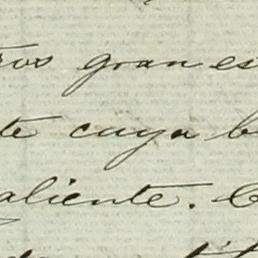 ros gran es
te cuya b
aliente. C